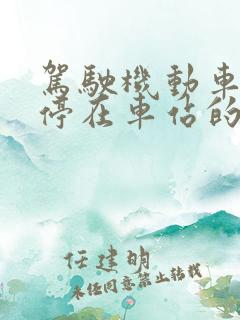 駕駛機動車
停在車佔的
任建明
未经同意禁止转载